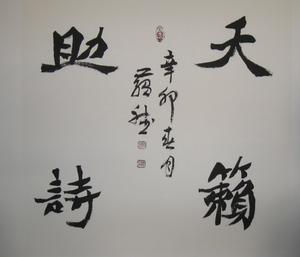 天籟
助詩
辛卯春月